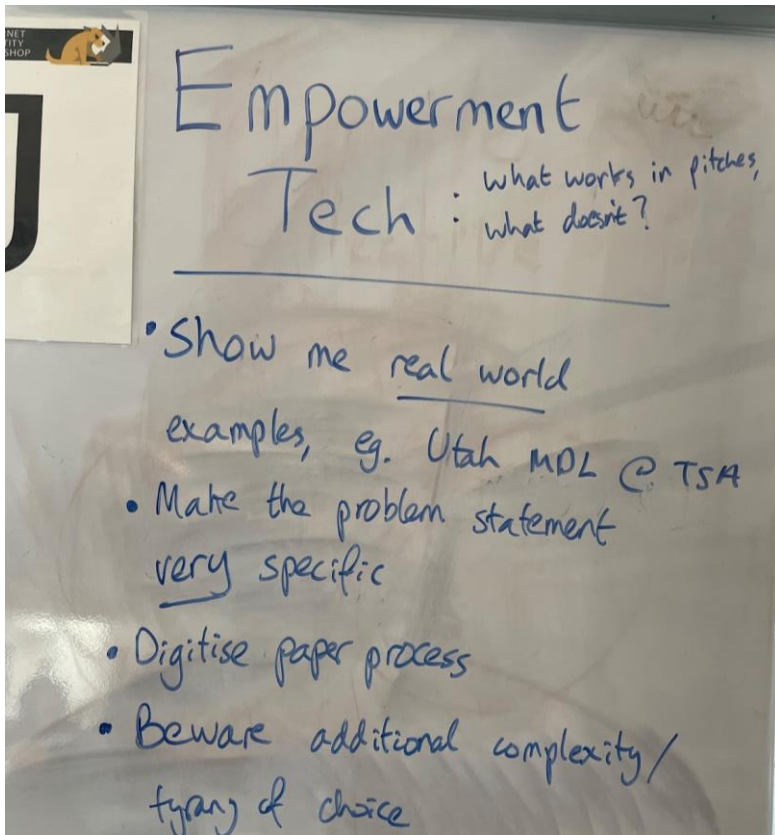 NET
TITY
SHOP
J
Empowerment
Tech : what works in pitches,
what doesn't?
• Show me real world
examples, eg. Utah MDL @ TSA
• Make the problem statement
very specific
• Digitise paper process
• Beware additional complexity/
tyrany of choice